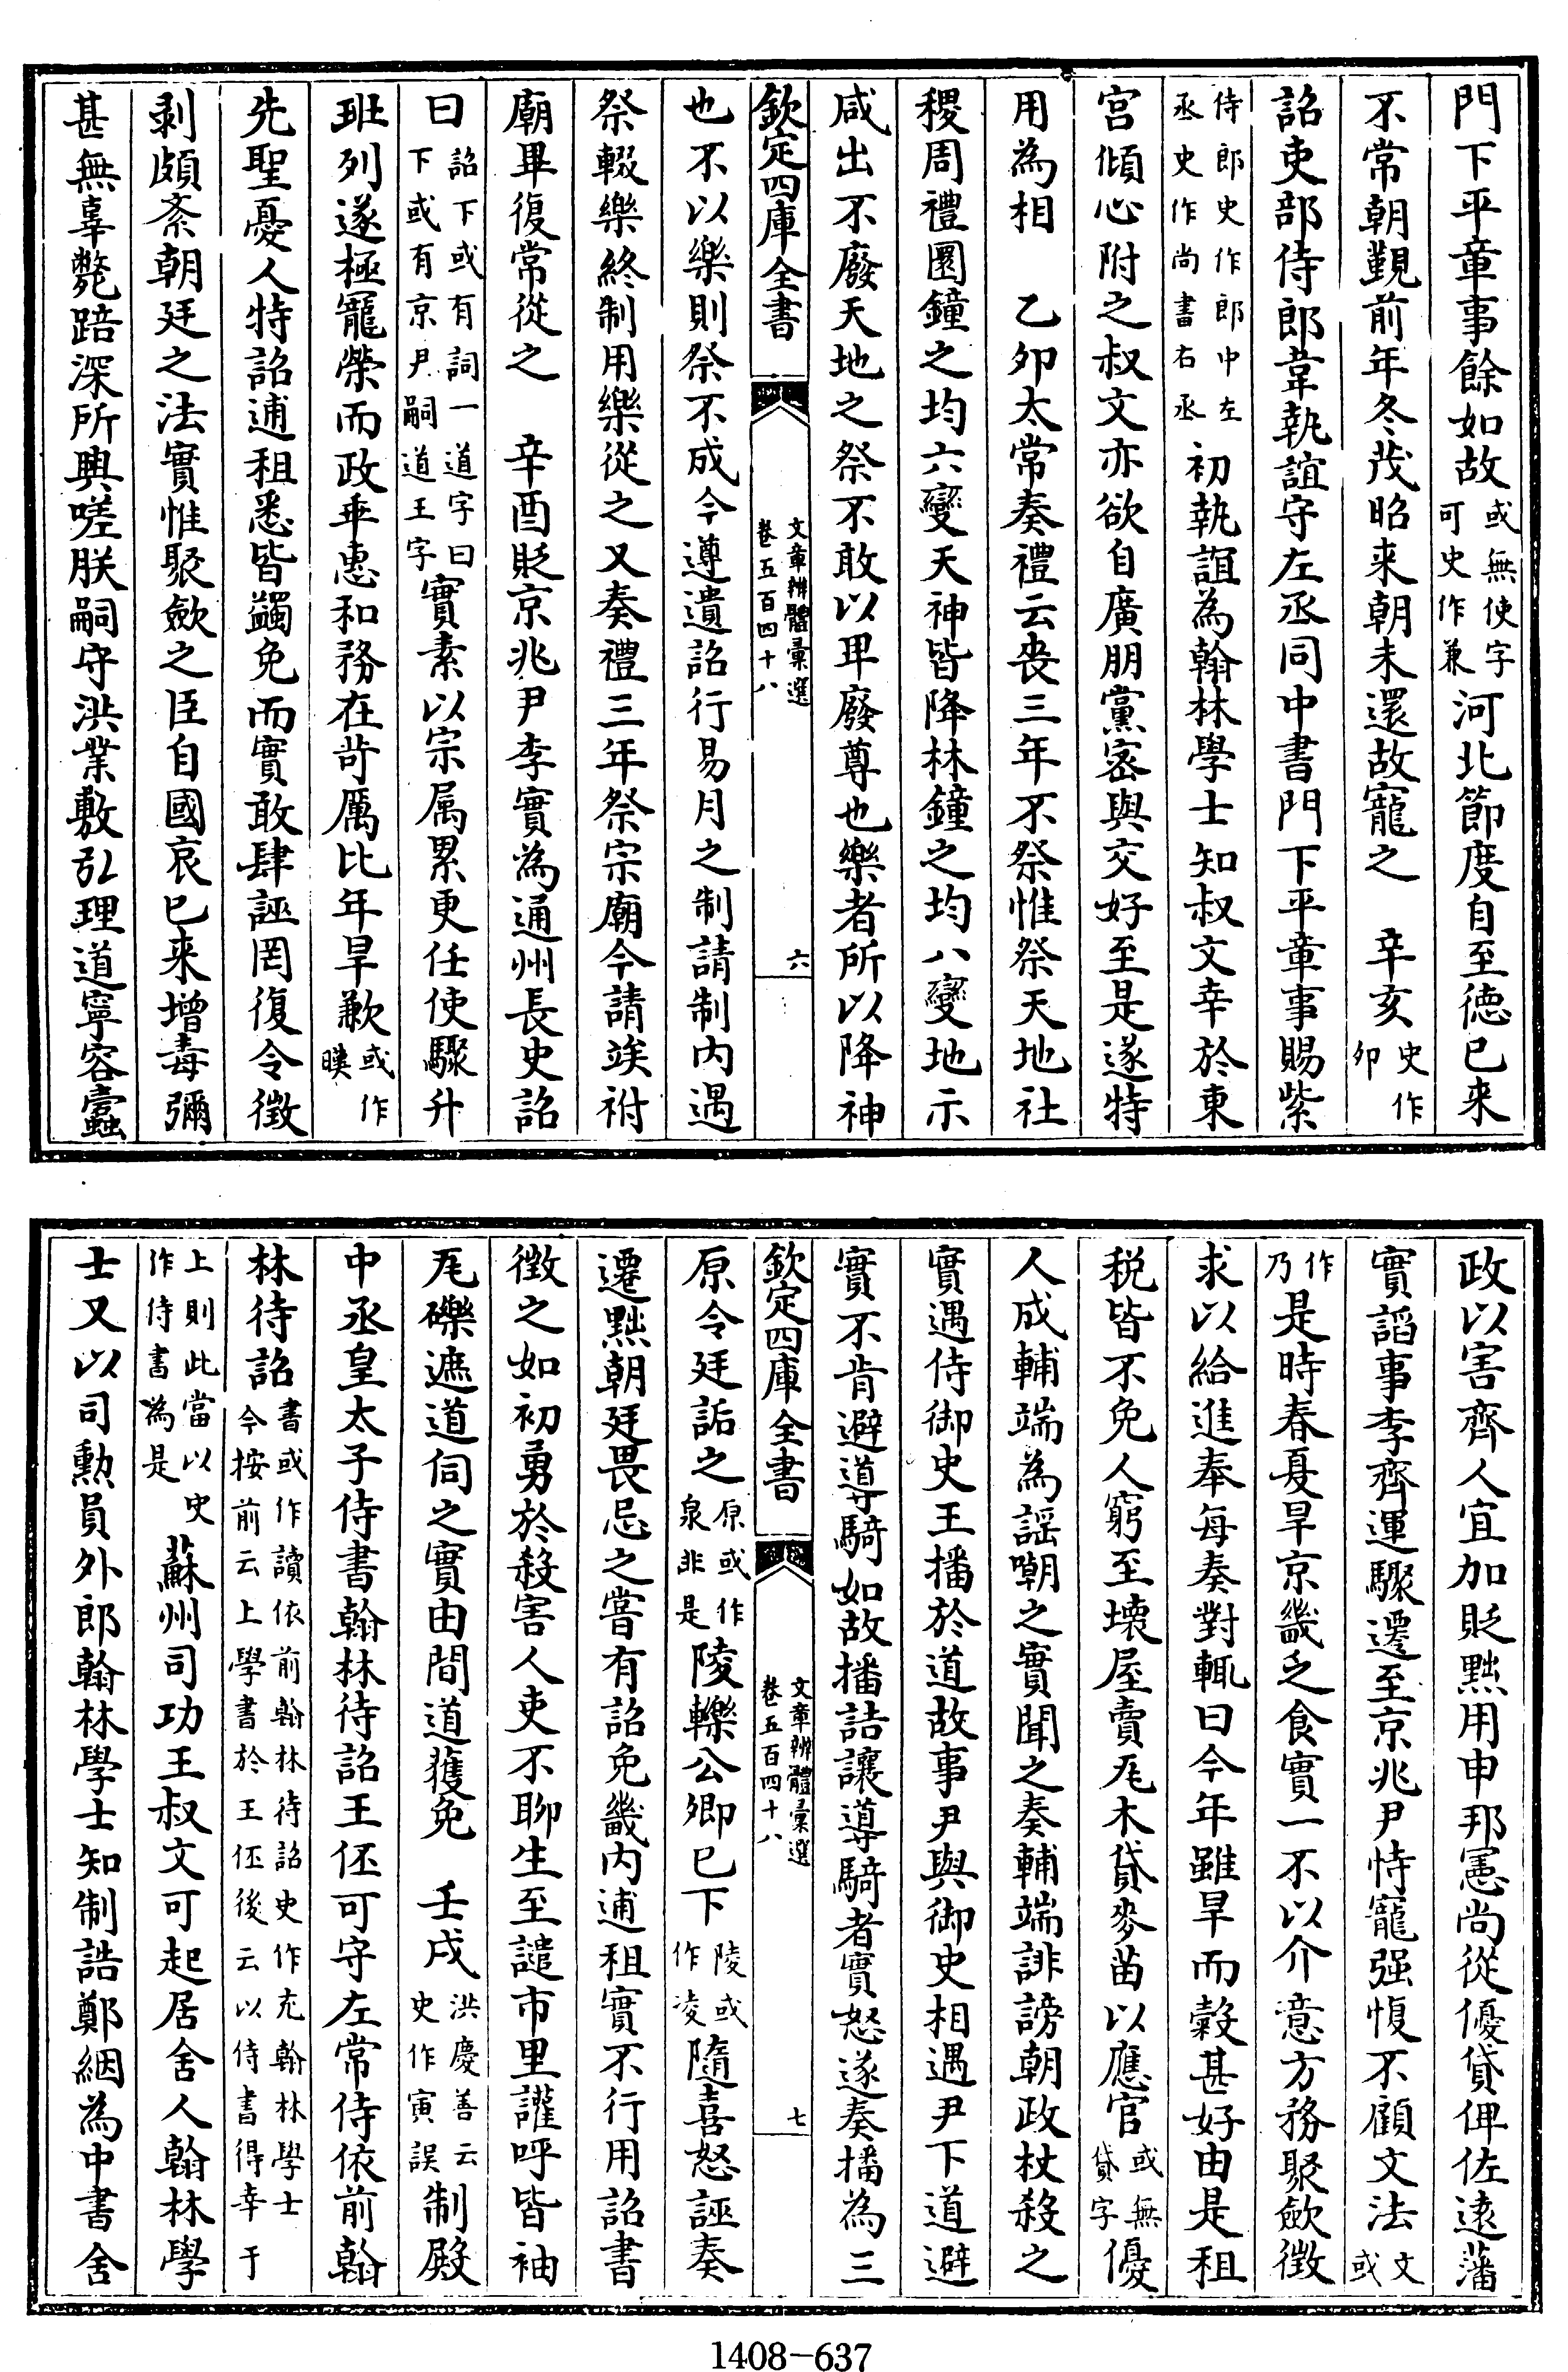 門下平章事餘如故或無使字可史作兼河北節度自至徳已来
不常朝覲前年冬茂昭来朝未還故寵之　辛亥史作卯
詔吏部侍郎韋執誼守左丞同中書門下平章事賜紫
侍郎史作郎中左丞史作尚書右丞初執誼為翰林學士知叔文幸於東
宫傾心附之叔文亦欲自廣朋黨密與交好至是遂特
用為相　乙卯太常奏禮云喪三年不祭惟祭天地社
稷周禮圜鐘之均六變天神皆降林鐘之均八變地示
咸出不廢天地之祭不敢以卑廢尊也樂者所以降神
欽定四庫全書　文章辨體彙選　卷五百四十八　六
也不以樂則祭不成今遵遺詔行易月之制請制内遇
祭輟樂終制用樂從之又奏禮三年祭宗廟今請竢祔
廟畢復常從之　辛酉貶京兆尹李實為通州長史詔
曰詔下或有詞一道字曰下或有京尹嗣道王字實素以宗属累更任使驟升
班列遂極寵榮而政乖惠和務在苛厲比年旱歉或作暵
先聖憂人特詔逋租悉皆蠲免而實敢肆誣罔復令徵
剥頗紊朝廷之法實惟聚歛之臣自國哀已来增毒彌
甚無辜斃踣深所興嗟朕嗣守洪業敷弘理道寧容蠹
政以害齊人宜加貶黜用申邦憲尚從優貸俾佐遠藩
實謟事李齊運驟遷至京兆尹恃寵强愎不顧文法文或
作乃是時春夏旱京畿乏食實一不以介意方務聚歛徵
求以給進奉每奏對輒曰今年雖旱而穀甚好由是租
税皆不免人窮至壊屋賣瓦木貸麥苗以應官或無貸字優
人成輔端為謡嘲之實聞之奏輔端誹謗朝政杖殺之
實遇侍御史王播於道故事尹與御史相遇尹下道避
實不肯避導騎如故播詰讓導騎者實怒遂奏播為三
欽定四庫全書　文章辨體彙選　卷五百四十八　七
原令廷詬之原或作泉非是陵轢公卿已下陵或作凌隨喜怒誣奏
遷黜朝廷畏忌之嘗有詔免畿内逋租實不行用詔書
徵之如初勇於殺害人吏不聊生至譴市里讙呼皆袖
瓦礫遮道伺之實由間道獲免　壬戌洪慶善云史作寅誤制殿
中丞皇太子侍書翰林待詔王伾可守左常侍依前翰
林待詔書或作讀依前翰林待詔史作充翰林學士今按前云上學書於王伾後云以侍書得幸于
上則此當以史作待書為是蘇州司功王叔文可起居舍人翰林學
士又以司勲員外郎翰林學士知制誥鄭絪為中書舍
1408-637